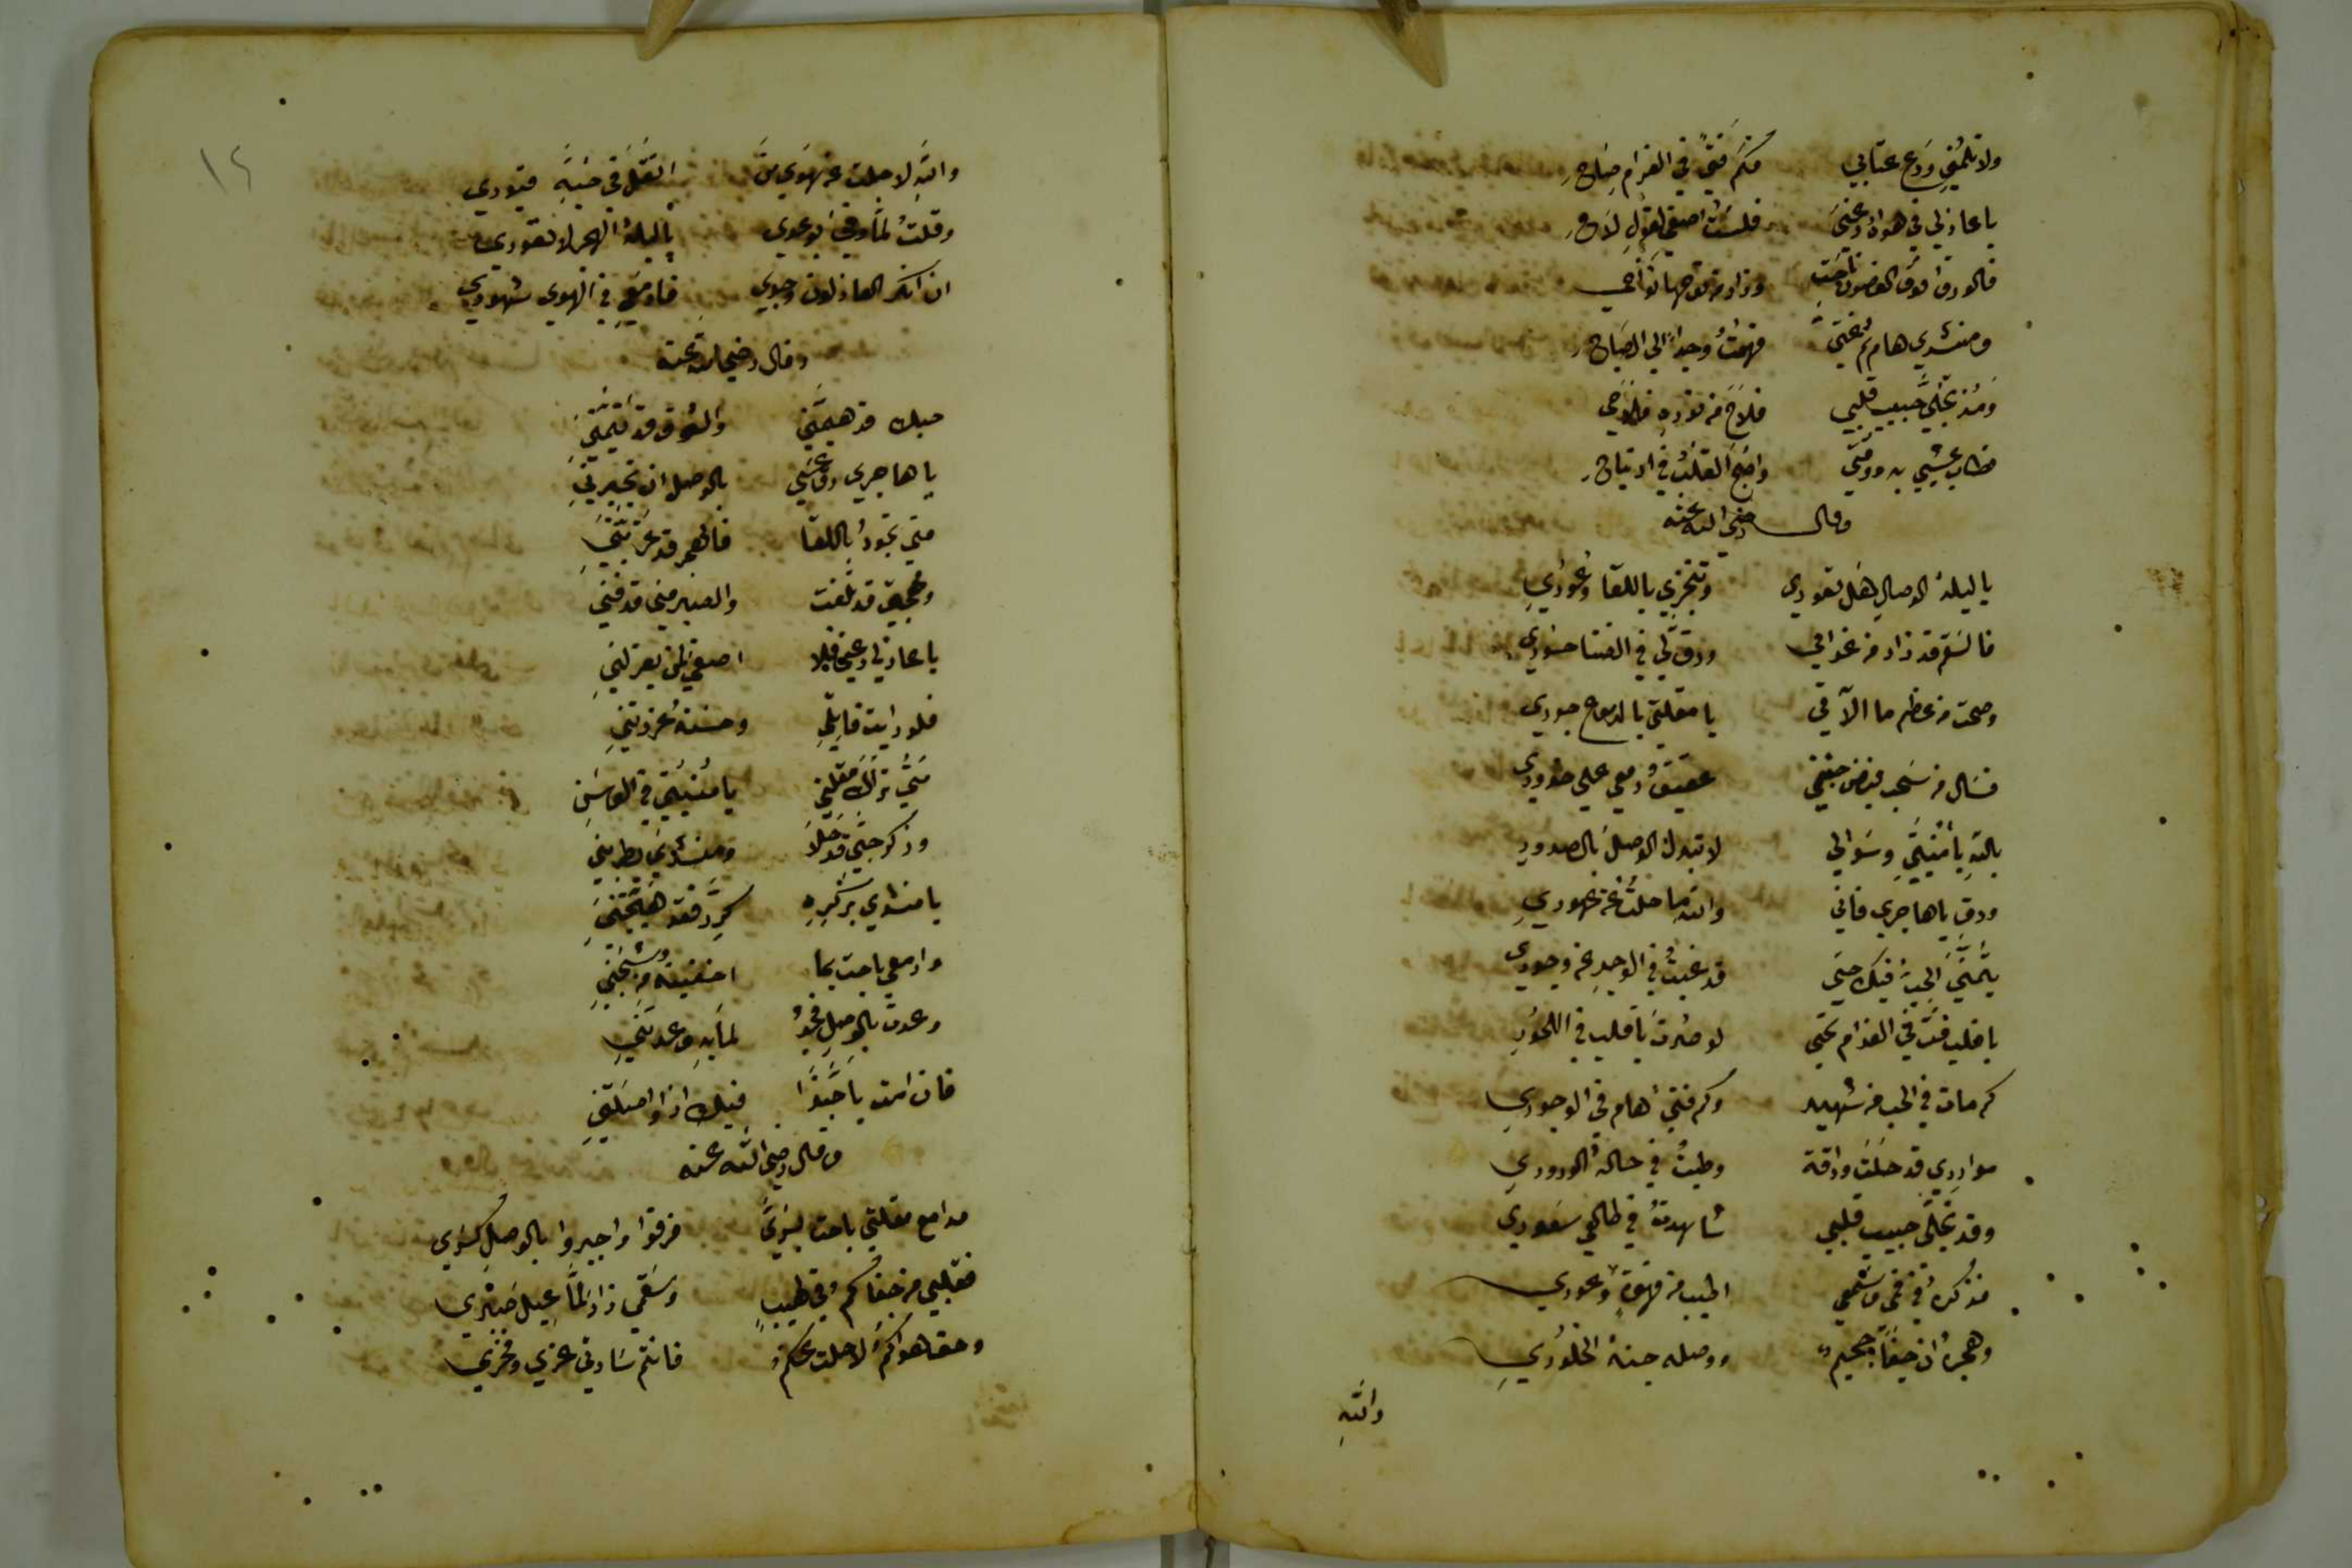 ولا تلمني ودع عتابي فكم فتي في الغرام صاح
يا عاذلي في هواه دعني فلست اصغي لقول لاح
فالورق فوق الغصون ناحت وزاد من نوحها نواحي
ومنشدي هام ثم غني فهمت وجدا الي الصباح
ومذ تجلي حبيب قلبي فلاح من نوره فلاحي
فطاب عيشي به ووقتي واضحي القلب في ارتياح
وقال رضي الله عنه
يا ليلة الوصال هل تعودي وتنجزي باللقا وعودي
فالسقم قد زاد من غرامي ورق لي في الضنا حسودي
وصحت من عظم ما الاقي يا مقلتي بالدموع جودي
فسال من سحب فيض جفني عقيق دمعي علي خدودي
بالله يا منيتي وسوالي لا تبدل الوصل بالصدود
ورق يا هاجري فاني والله ما حلت عن عهودي
يتمني الحب فيك حتي قد غبت في الوجد عن وجودي
يا قلب مت في الغرام تحيي لو صرت يا قلب في اللحود
كم مات في الحب من شهيد وكم فتي هام في الوجودي
مواردي قد حلت وراقة وطبت في حالة الورودي
وقد تجلي حبيب قلبي شاهدت في طالعي سعودي
فذكره في فمي وسمعي اطيب من قهوة وعودي
وهجره ان جفا جحيم ووصله جنة الخلودي
والله
١٢
والله لا حلت عن هوي من اثقل في حبه قيودي
وقلت لما وفي بوعدي يا ليلة الهجر لا تعودي
ان انكر العاذلون وجدي فادمعي في الهوي شهودي
وقال رضي الله عنه
حبك قد هيمني والشوق قد تيمني
يا هاجري رق عسي بالوصل ان تجبرني
متي تجود باللقا فالهجر قد غربتني
ومهجتي قد تلفت والصبر مني قد فني
يا عاذلي دعني فلا اصغي لمن يعزلني
فلو رايت قاتلي وحسنه عزرتني
متي تراك مقلتي يا منيتي في الوسن
وذكر حبي قد حلا ومنشدي يطربني
يا منشدي بذكره كرر فقد هيجتني
وادمعي باحت بما اخفيته من شجني
وعدت بالوصل فجد لما به وعدتني
فان امت يا حبذا فيك اذا واصلتني
وقال رضي الله عنه
مدامع مقلتي باحت بسري فرقوا واجبروا بالوصل كسري
فقلبي من جفاكم في لهيب وسقمي زاد لما عيل صبري
وحق هواكم لا حلت عنكم فانتم سادتي عزي وفخري